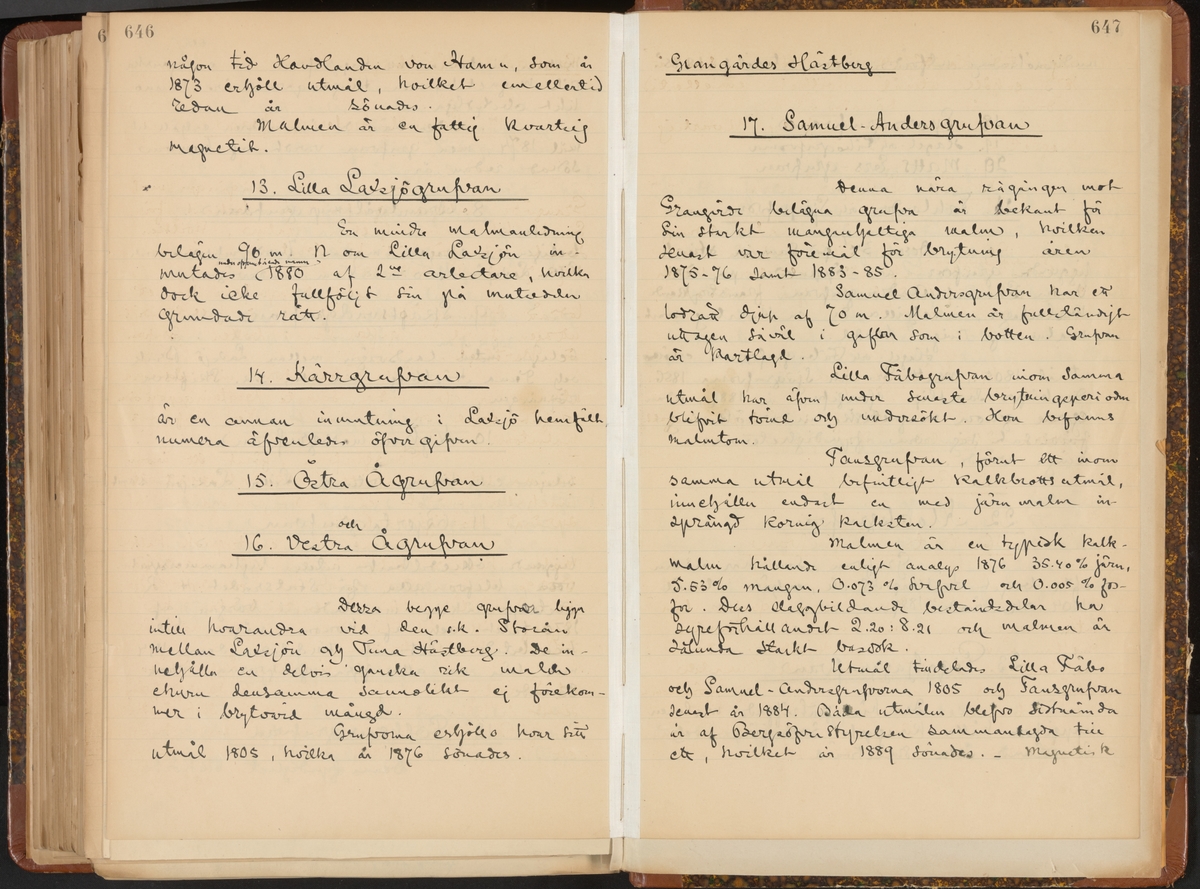 646
någon tid Handlanden von Hamn, som år
1873 erhöll utmål, hvilket emellertid
redan är sönadt.
Malmen är en fattig kvartsig
magnetit.
13. Lilla Laxsjögrufvan
En mindre malmanledning
belägen 90 m. N om Lilla Laxsjön in-
mutades 1880 af 2ne arbetare, hvilka
dock icke fullföljt sin på mutsedeln
grundade rätt.
14. Kärrgrufvan
är en annan inmutning i Laxsjö hemfält,
numera äfvenledes öfvergifven.
15. Östra Ågrufvan
och
16. Vestra Ågrufvan
Dessa begge grufvor ligga
intill hvarandra vid den s.k. Storån
mellan Laxsjön och Tuna Hästberg. De in-
nehålla en delvis ganska rik malm
ehuru densamma sannolikt ej förekom-
mer i brytvärd mängd.
Grufvorna erhöllo hvar sitt
utmål 1805, hvilka år 1876 sönades.
647
Grangärdes Hästberg
17. Samuel-Andersgrufvan
Denna nära rågången mot
Grangärde belägna grufva är bekant för
sin starkt manganhaltiga malm, hvilken
senast var föremål för brytning åren
1875-76 samt 1883-85.
Samuel Andersgrufvan har ett
lodrätt djup af 70 m. Malmen är fullständigt
uttagen såväl i gaflar som i botten. Grufvan
är kartlagd.
Lilla Fäbogrufvan inom samma
utmål har äfven under senaste brytningsperioden
blifvit länsd och undersökt. Hon befanns
malmtom.
Tansgrufvan, förut ett inom
samma utmål befintligt kalkbrottsutmål,
innehåller endast en med järnmalm in-
sprängd kornig kalksten.
Malmen är en typisk kalk-
malm hållande enligt analys 1876 35.40 % järn,
5.53 % mangan, 0.073 % svafvel och 0.005 % fos-
for. Dess slaggbildande beståndsdelar ha
syreförhållandet 2.20:8.21 och malmen är
sålunda starkt basisk.
Utmål tilldelades Lilla Fäbo
och Samuel-Andersgrufvorna 1805 och Tansgrufvan
senast år 1884. Båda utmålen blefvo sistnämda
år af Bergsöfverstyrelsen sammanlagda till
ett, hvilket år 1889 sönades. - Magnetisk